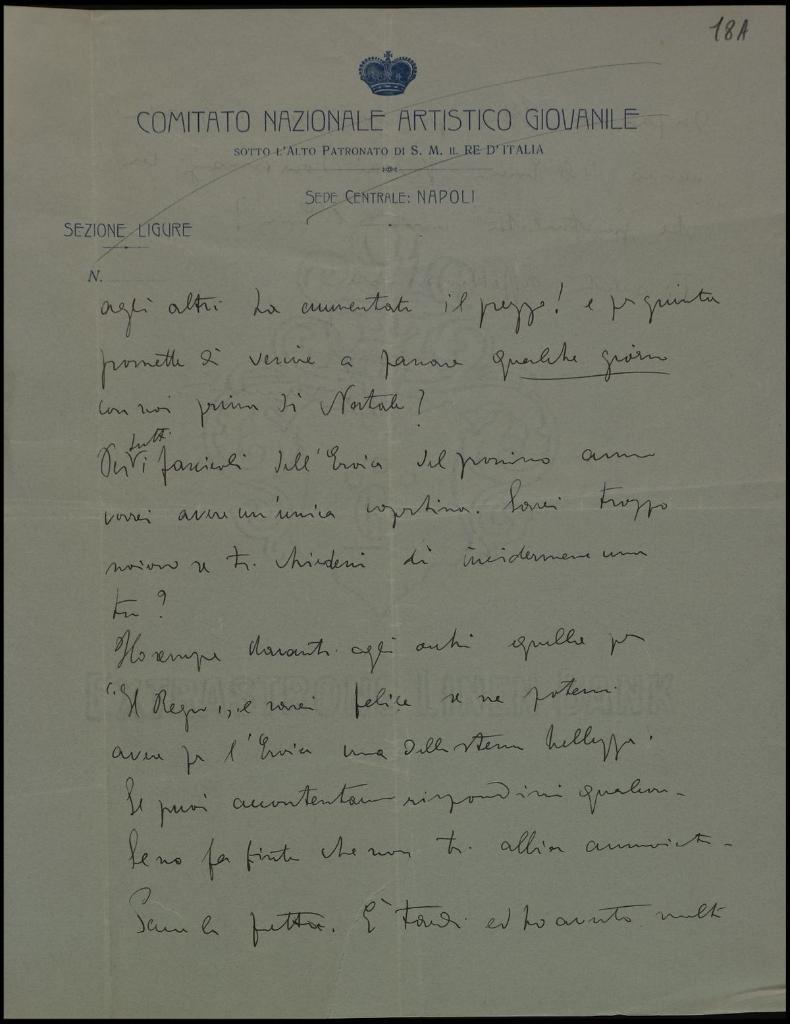 18A
COMITATO NAZIONALE ARTISTICO GIOVANILE
SOTTO L'ALTO PATRONATO DI S. M. IL RE D'ITALIA
SEDE CENTRALE: NAPOLI
SEZIONE LIGURE
N.
agli altri ha aumentato il prezzo! e per giunta
promette di venire a passare qualche giorno
con noi prima di Natale?
tutti
i fascicoli dell'Eroica del prossimo anno
vorrei avere un'unica copertina. Sarei troppo
noioso se ti chiedessi di incidermene una
tu?
Ho sempre davanti agli occhi quella per
"Il Regno", e sarei felice se ne potessi
avere per l'Eroica una della stessa bellezza.
Se puoi accontentarmi rispondimi qualcosa -
Se no fa finta che non ti abbia
Scusa la fretta. È tardi ed ho avuto molti